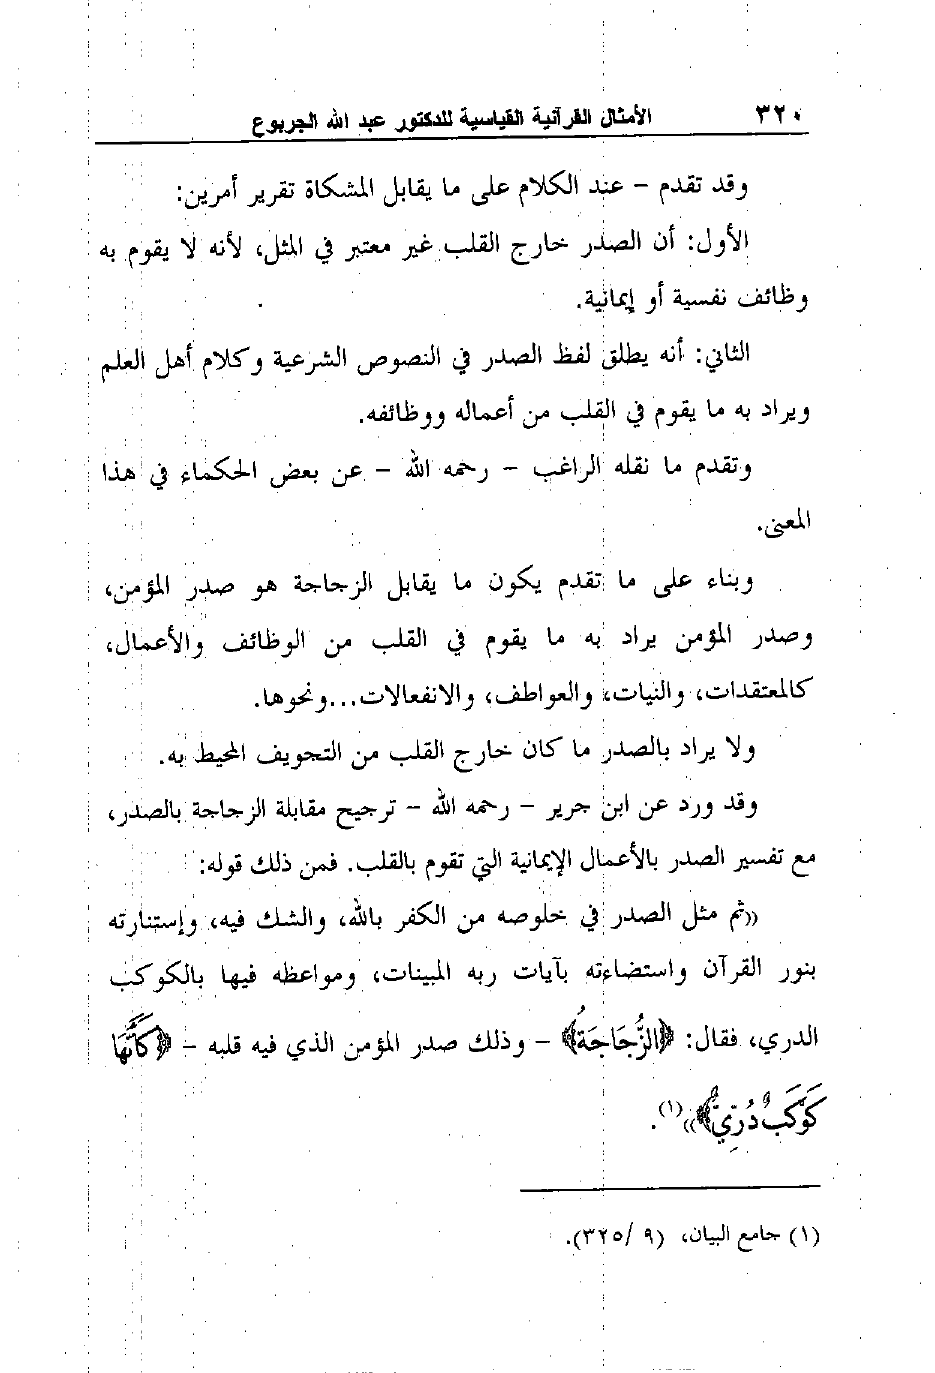 ٣٢٠ الأمثال القرآنية القياسية للدكتور عبد الله الجربوع
وقد تقدم – عند الكلام على ما يقابل المشكاة تقرير أمرين:
الأول: أن الصدر خارج القلب غير معتبر في المثل، لأنه لا يقوم به
وظائف نفسية أو إيمانية.
الثاني: أنه يطلق لفظ الصدر في النصوص الشرعية وكلام أهل العلم
ويراد به ما يقوم في القلب من أعماله ووظائفه.
وتقدم ما نقله الراغب – رحمه الله – عن بعض الحكماء في هذا
المعنى.
وبناء على ما تقدم يكون ما يقابل الزجاجة هو صدر المؤمن،
وصدر المؤمن يراد به ما يقوم في القلب من الوظائف والأعمال،
كالمعتقدات، والنيات، والعواطف، والانفعالات...ونحوها.
ولا يراد بالصدر ما كان خارج القلب من التجويف المحيط به.
وقد ورد عن ابن جرير – رحمه الله – ترجيح مقابلة الزجاجة بالصدر،
مع تفسير الصدر بالأعمال الإيمانية التي تقوم بالقلب. فمن ذلك قوله:
((ثم مثل الصدر في خلوصه من الكفر بالله، والشك فيه، وإستنارته
بنور القرآن واستضاءته بآيات ربه المبينات، ومواعظه فيها بالكوكب
الدري، فقال: ﴿الزُّجَاجَةُ﴾ – وذلك صدر المؤمن الذي فيه قلبه – ﴿كَأَنَّهَا
كَوْكَبٌ دُرِّيٌّ﴾))(١).
(١) جامع البيان، (٩ /٣٢٥).